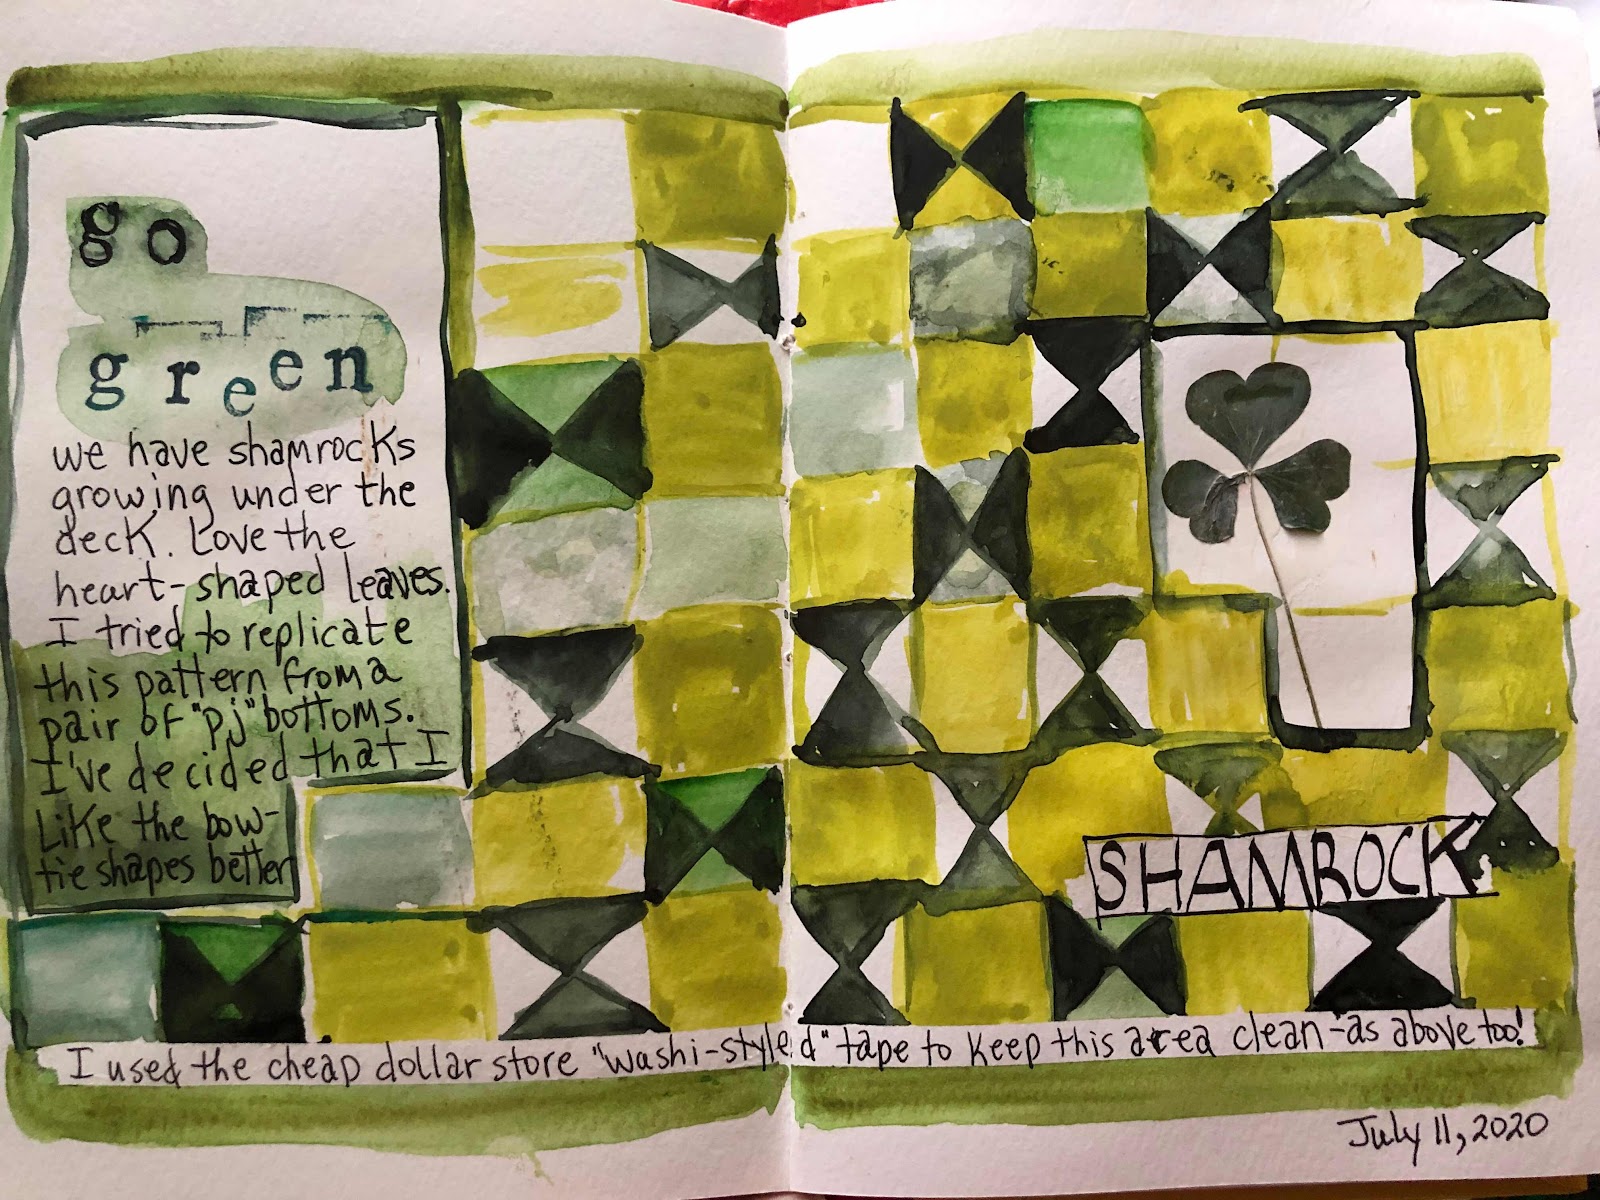 go
green
we have shamrocks
growing under the
deck. Love the
heart-shaped leaves.
I tried to replicate
this pattern from a
pair of "pj" bottoms.
I've decided that I
Like the bow-
tie shapes better
SHAMROCK
I used the cheap dollar store "washi-styled" tape to keep this area clean-as above too!
July 11, 2020